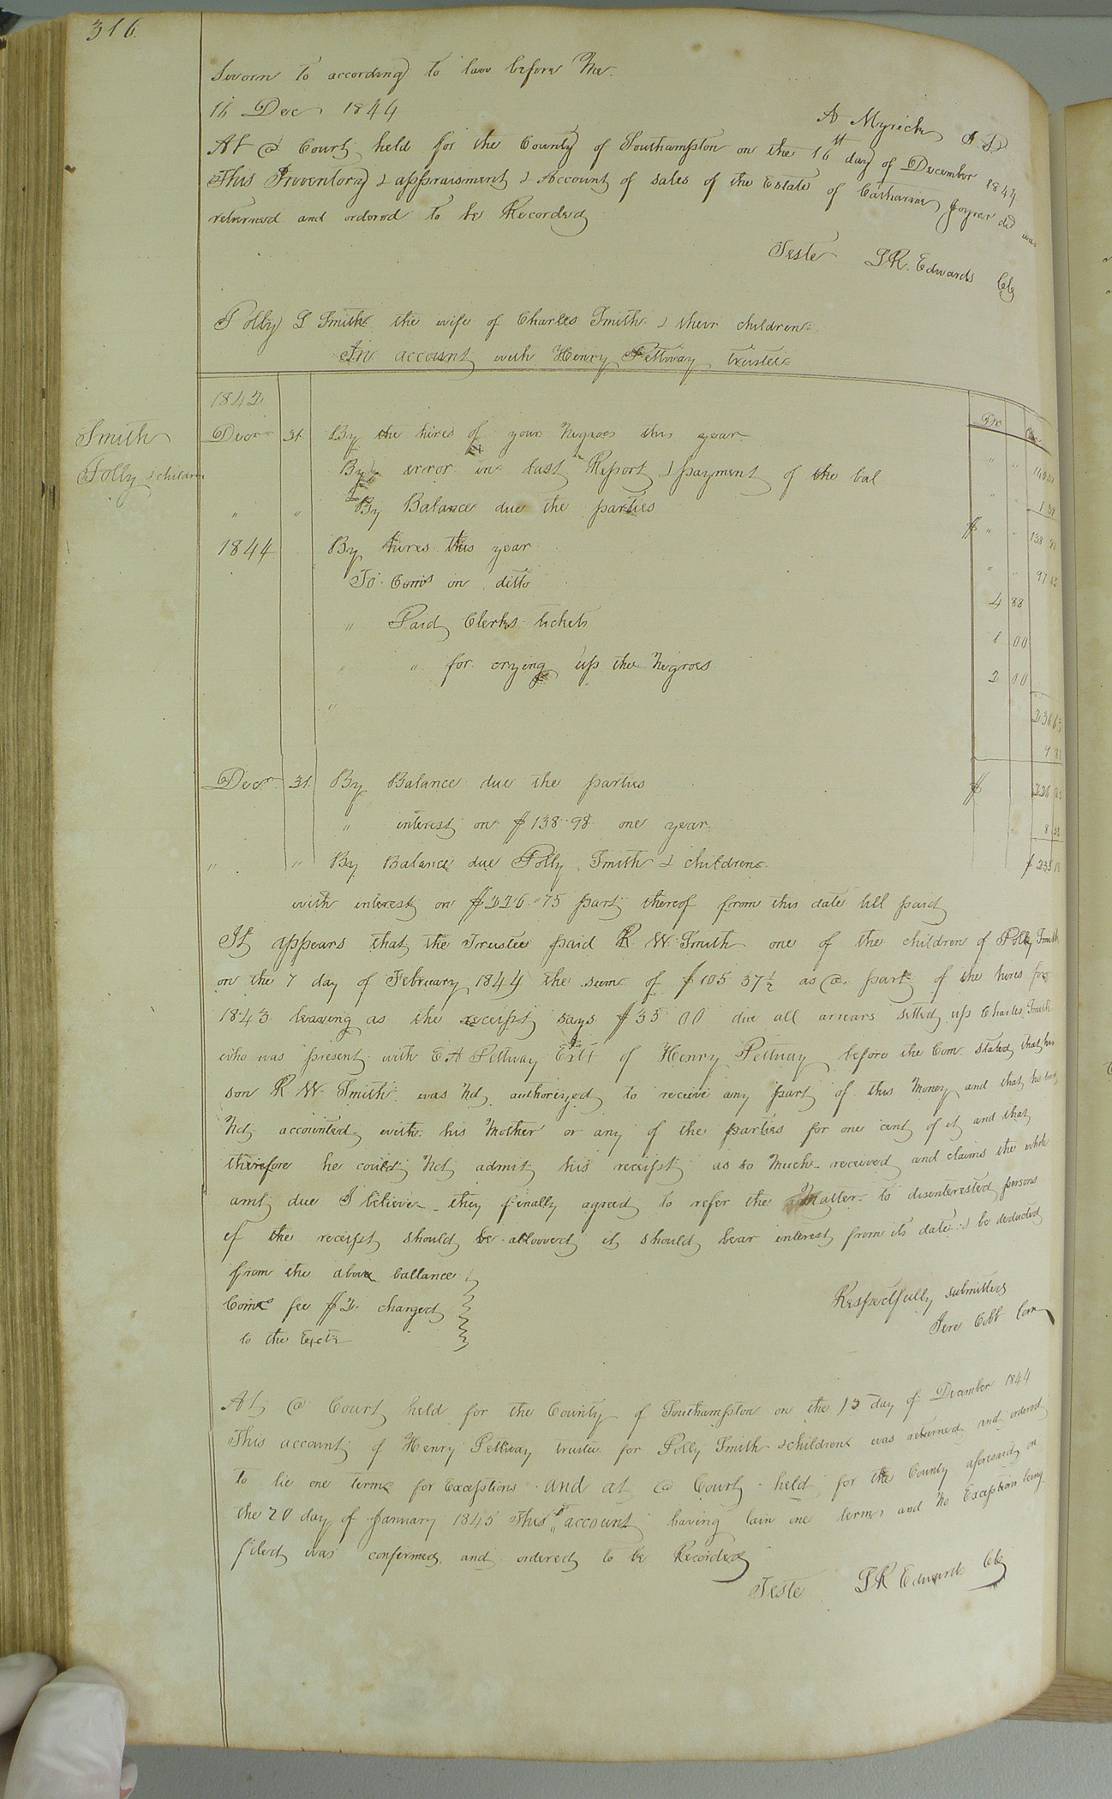 316.
Sworn to according to law before Me.
16 Dec 1844
A Myrick J P
At a Court held for the County of Southampton on the 16th day of December 1844
This Inventory & appraisment & Account of sales of the Estate of Catharine decd was
returned and ordered to be Recorded
Teste L R. Edwards Clk
Polly S Smith the wife of Charles Smith & their children
In account with Henry Pettway trustee
1843
Dr. Cr.
Smith
Polly & children
Decr 31 By the hires of your Negroes this year
By error in last Report & payment of the bal
" " By Balance due the parties $ " " 138 98
1844 By hires this year " " 97
To Coms on ditto 4 88
" Paid Clerks tickets 1 00
" " for crying up the Negroes 2 00
"
Decr 31 By Balance due the parties $
" interest on $138.98 one year
" " By Balance due Polly Smith & children $
with interest on $226.75 part thereof from this date till paid
It appears that the Trustee paid R. W. Smith one of the children of Polly Smith
on the 7 day of February 1844 the sum of $105 37½ as a part of the hires for
1843 leaving as the receipt says $35 00 due all arrears settled up Charles Smith
who was present with E A Pettway Exr of Henry Pettway before the Com. stated that his
son R W Smith was Not authorized to receive any part of this Money and that he had
Not accounted with his Mother or any of the parties for one cent of it and that
therefore he could Not admit his receipt as so much received and claims the whole
amt due I believe they finally agreed to refer the Matter to disenterested persons
if the receipt should be allowed it should bear interest from its date & be deducted
from the above ballance
Respectfully submitted
Come fee $2 charged
Jere Cobb Com
to the Exctr
At a Court held for the County of Southampton on the 15 day of December 1844
This account of Henry Pettway trustee for Polly Smith & children was returned and ordered
to lie one term for Exceptions and at a Court held for the County aforesaid on
the 20 day of January 1845 This account having lain one term and No Exception being
filed was confermed and ordered to be Recorded
Teste L R Edwards Clk